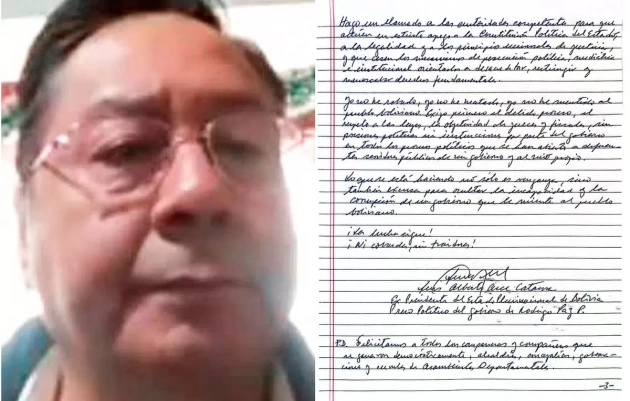 Hago un llamado a las autoridades competentes para que
actúen en estricto apego a la Constitución Política del Estado,
a la legalidad y a los principios universales de justicia,
y que cesen los mecanismos de persecución política, mediática
e institucional orientados a desacreditar, restringir y
menoscabar derechos fundamentales.
Yo no he robado, yo no he matado, yo no he mentido al
pueblo boliviano. Exijo primero el debido proceso, el
respeto a las leyes, la objetividad de jueces y fiscales, sin
presiones políticas ni instrucciones por parte del gobierno
en todos los procesos políticos que se han abierto a diferentes
servidores públicos de mi gobierno y al mío propio.
Lo que se está haciendo no sólo es venganza, sino
también excusa para ocultar la incapacidad y la
corrupción de un gobierno que le miente al pueblo
boliviano.
¡La lucha sigue!
¡Ni cobardes, ni traidores!
Luis Alberto Arce Catacora
Ex Presidente del Estado Plurinacional de Bolivia
Preso Político del gobierno de Rodrigo Paz P.
P.D. Felicitamos a todos los compañeros y compañeras que
se ganaron democráticamente, alcaldías, concejalías, goberna-
ciones y curules de Asambleístas Departamentales.
-3-